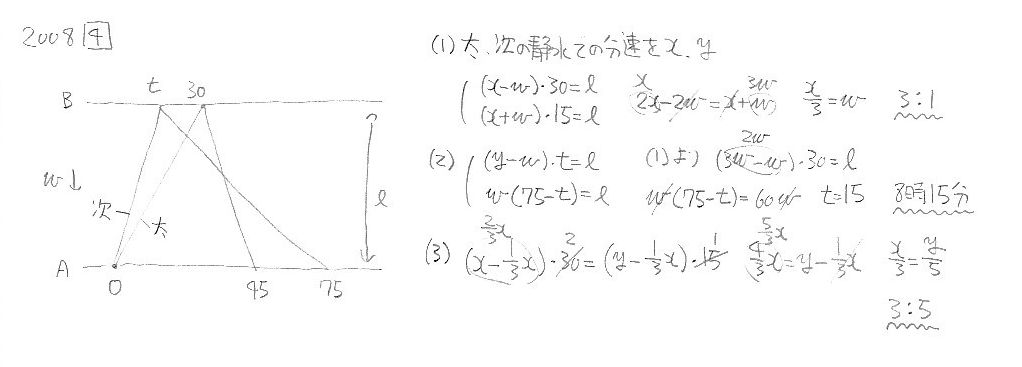 2008 4
t 30
B
w↓
次 大
l
A
0 45 75
(1) 大、次の静水での分速をx、y
(x-w)・30=l
(x+w)・15=l
x 3w
2x-2w=x+w x/3=w 3:1
(2) (y-w)・t=l
w(75-t)=l
2w
(1)より (3w-w)・30=l
w(75-t)=60w t=15 8時15分
2/3x 2 1 5/3x
(3) (x-1/3x)・30=(y-1/3x)・15 4/3x=y-1/3x x/3=y/5
3:5